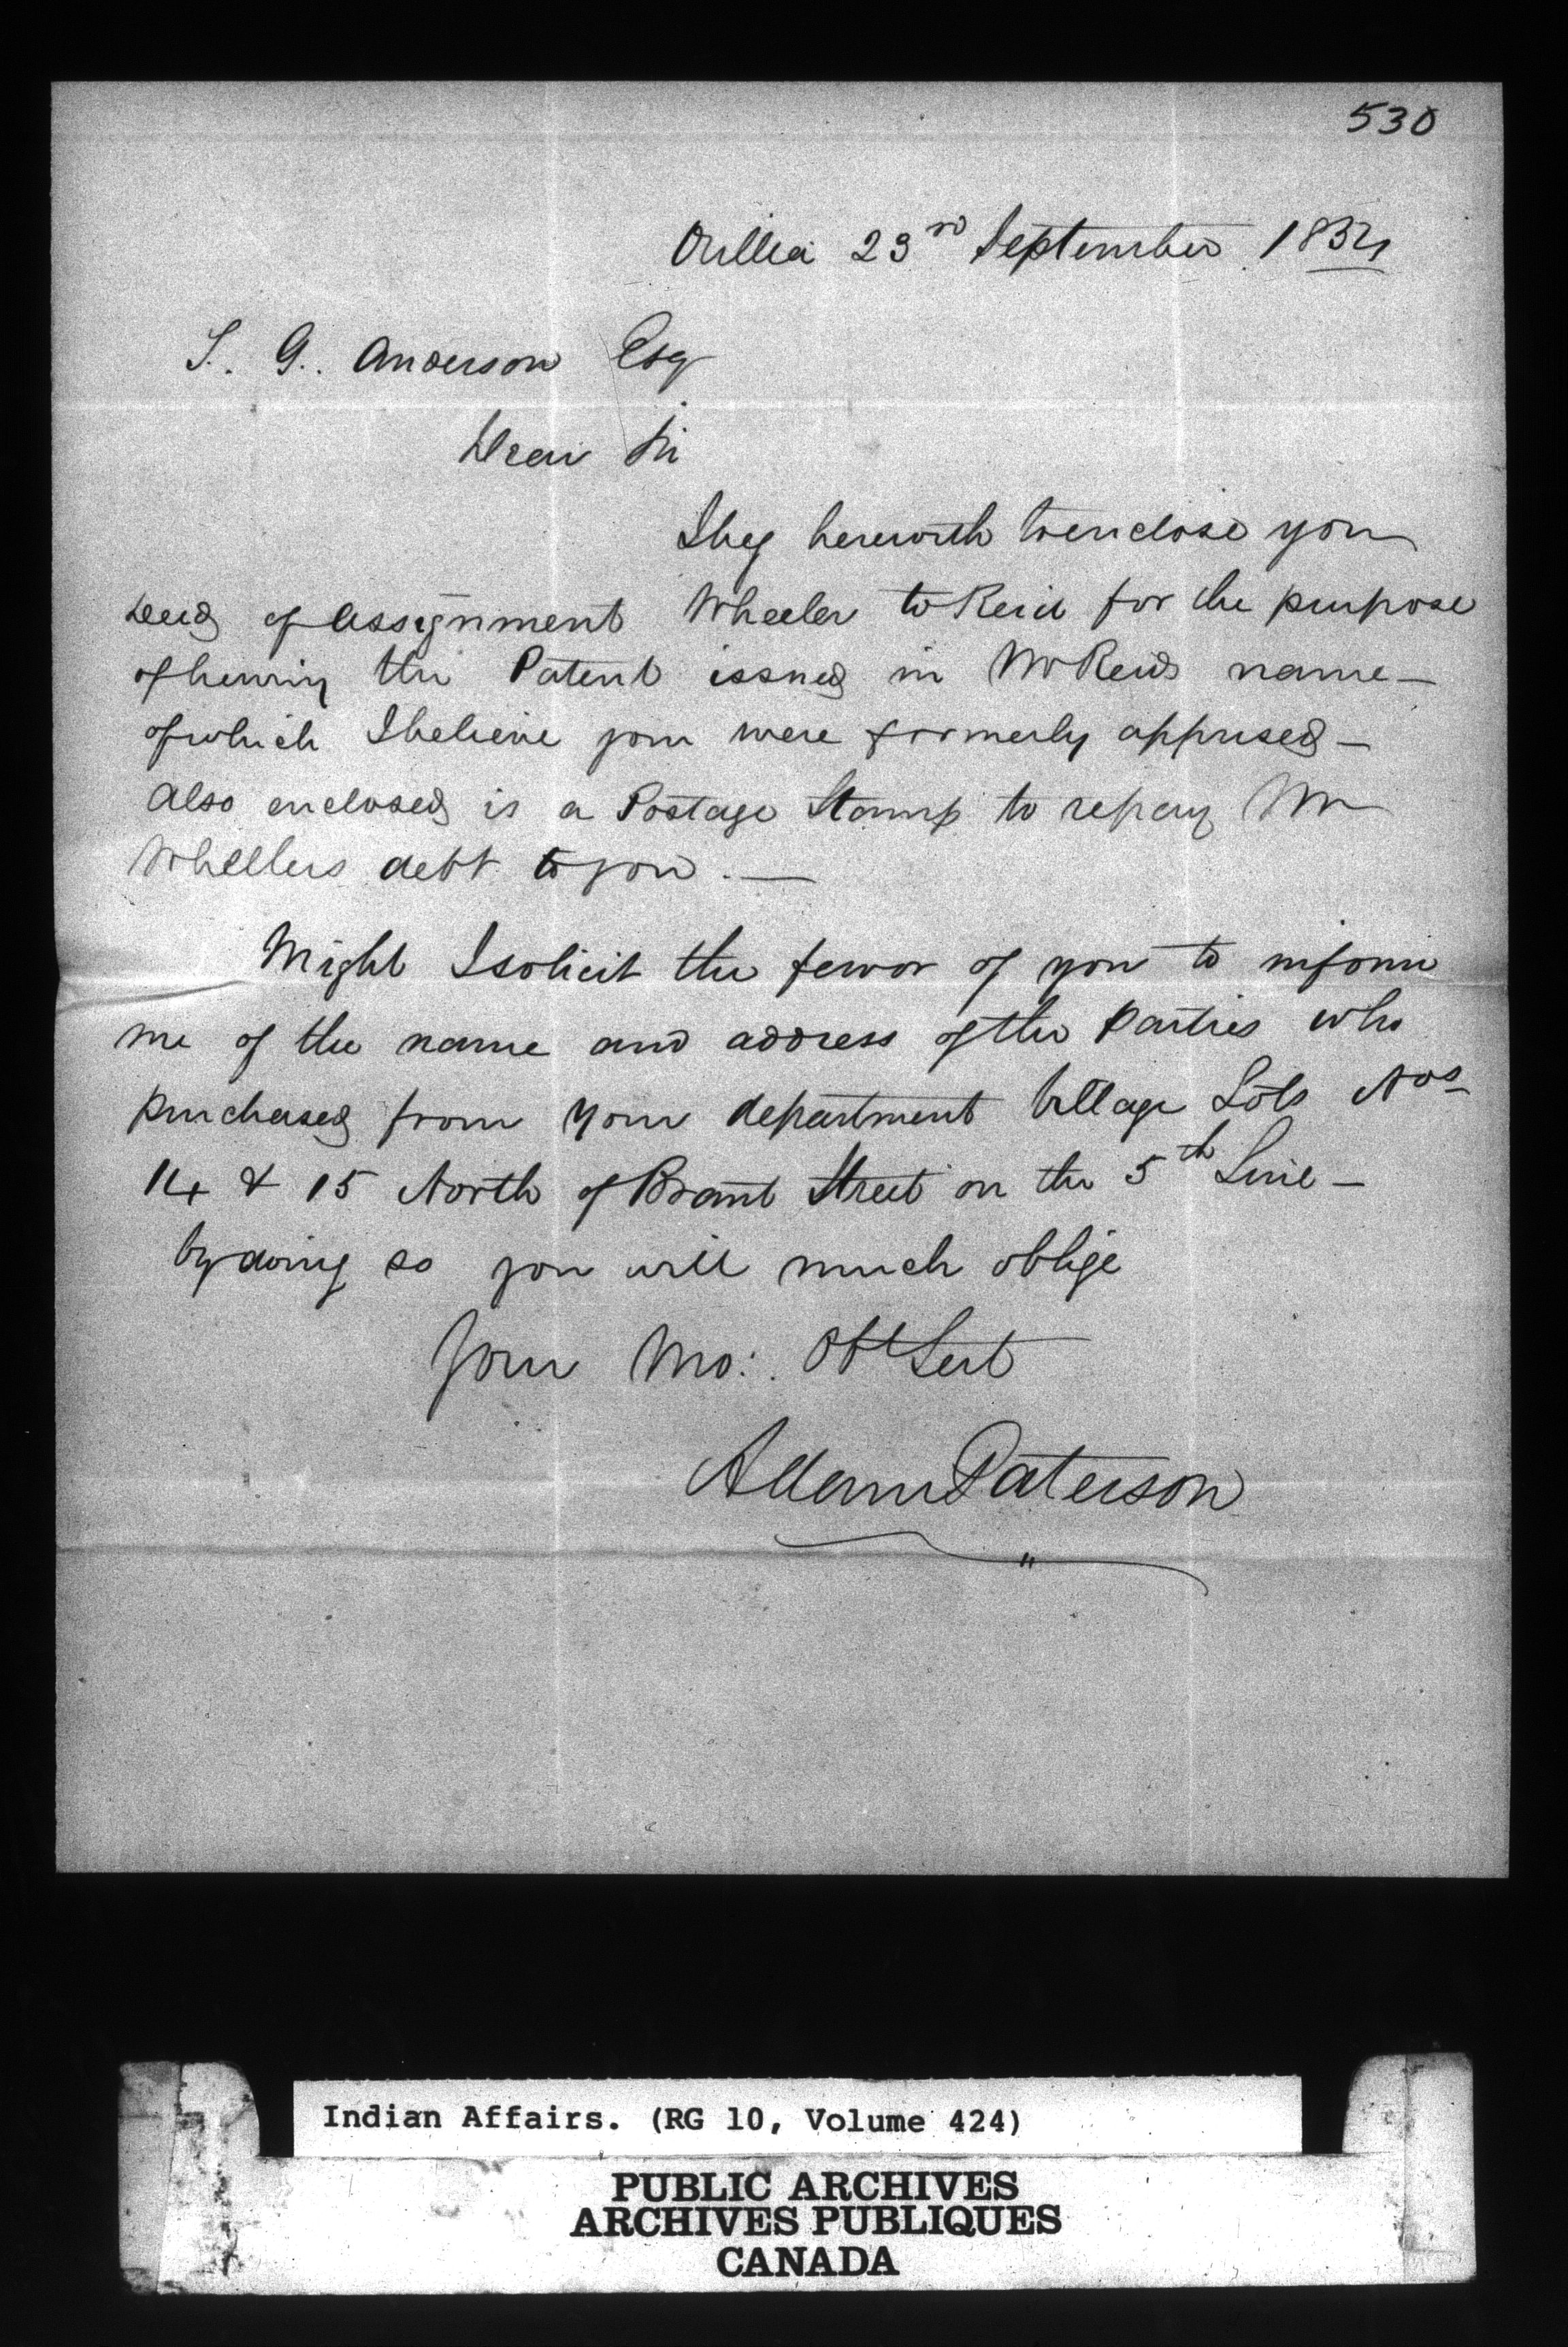 530
Orillia 23rd September 1854
T. G. Anderson Esq
Dear Sir
I beg herewith to enclose you
Deed of Assignment Wheeler to Reid for the purpose
of having the Patent issued in Mr Reids name —
of which I believe you were formerly apprised —
Also enclosed is a Postage Stamp to repay Mr
Wheelers debt to you. —
Might I solicit the favor of you to inform
me of the name and address of the Parties who
purchased from your department Village Lots Nos
14 & 15 North of Brant Street on the 5th Line —
by doing so you will much oblige
Your Mo: Obt Sert
Adam Paterson
Indian Affairs. (RG 10, Volume 424)
PUBLIC ARCHIVES
ARCHIVES PUBLIQUES
CANADA